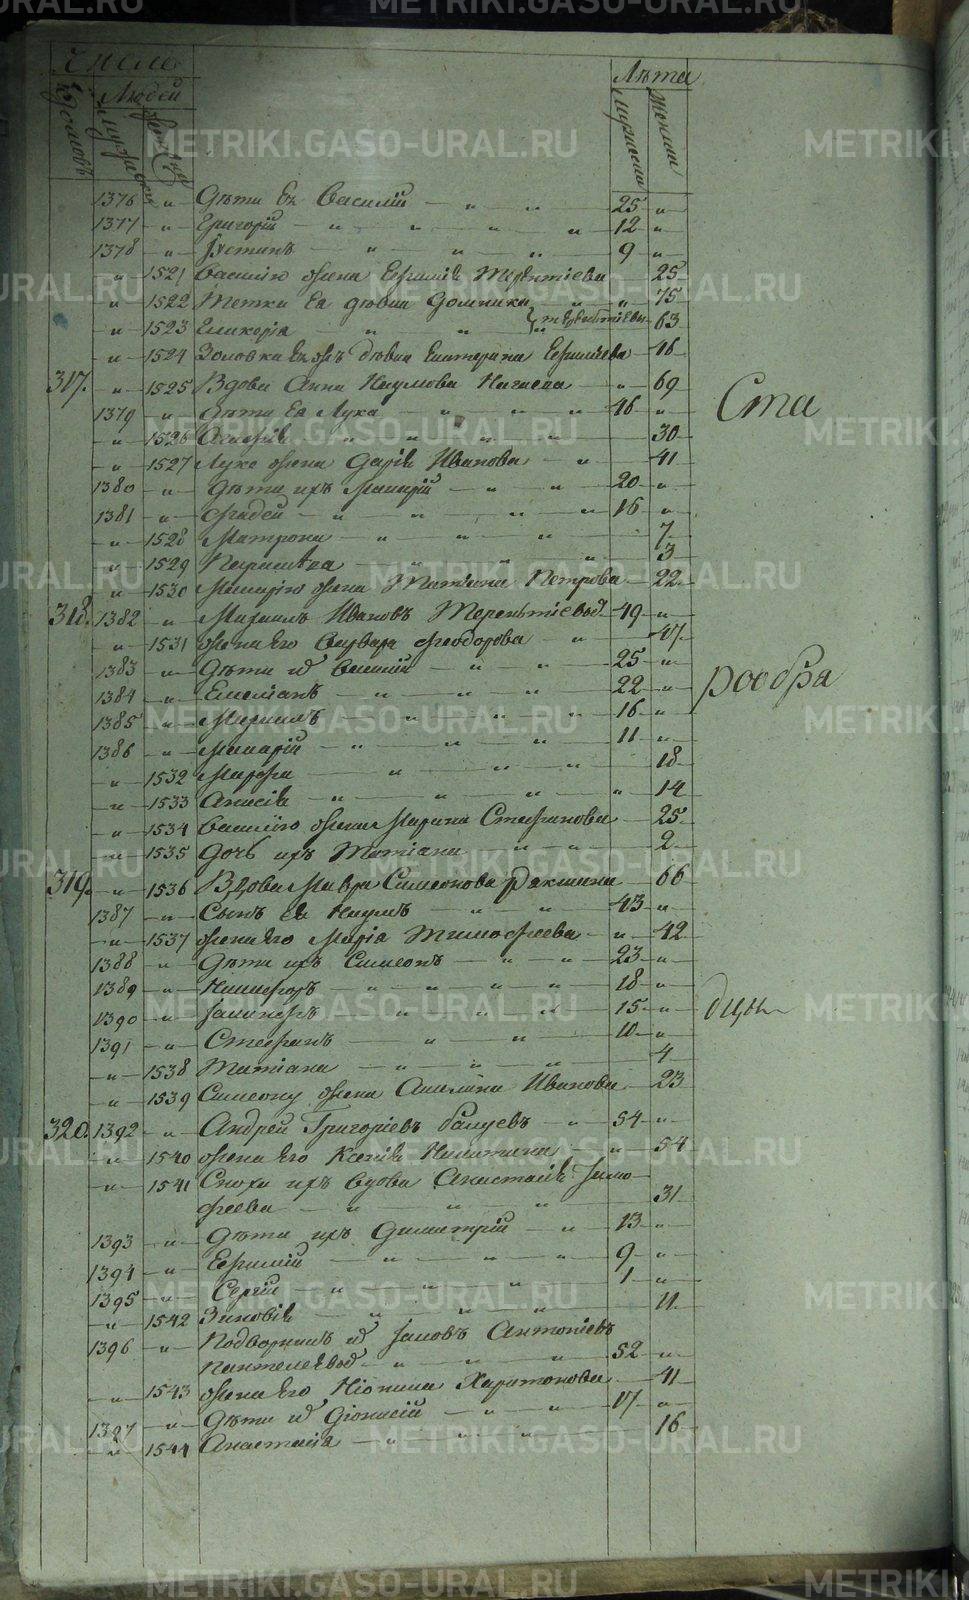 Число
Людей
Лѣта
Домовъ
Мужеска
Женска
Мужескии
Женскии
1376 " Дѣти Ея Василій " " 25 "
1377 " Григорій " " " " 12 "
1378 " Іустинъ " " " 9 "
" 1521 Василію жена Евгенія Терентіева 25
" 1522 Тетки Ея дѣвки Домника " " 75
" 1523 Гликерія " " Терентіевы 63
" 1524 Золовка Ея жъ дѣвка Екатерина 16
317. " 1525 Вдова Анна Наумова " 69
1379 " Дѣти Ея Лука " " " 46 "
" 1526 Агафія " " " " 30
" 1527 Луке жена Дарія Иванова " 41
1380 " Дѣти ихъ Макарій " " 20 "
1381 " Фадей " " " " 16 "
" 1528 Матрона " " " 7
" 1529 Параскева " " " 3
" 1530 Макарію жена Татіана Петрова 22
318. 1382 " Михаилъ Ивановъ Терентіевъ 49 "
" 1531 жена Его Варвара Феодорова " 47
1383 " Дѣти ихъ Василій " " 25 "
1384 " Емеліанъ " " " 22 "
1385 " Михаилъ " " " 16 "
1386 " Макарій " " " 11 "
" 1532 Марфа " " " 18
" 1533 Анисія " " " " 14
" 1534 Василію жена Марина Стефанова 25
" 1535 Дочь ихъ Татіана " " 2
319. " 1536 Вдова Мавра Симеонова 66
1387 " Сынъ Ея Наумъ " " 43 "
" 1537 жена Его Марія Тимофеева " 42
1388 " Дѣти ихъ Симеонъ " " 23 "
1389 " Никифоръ " " " " 18 "
1390 " " " " 15 "
1391 " Стефанъ " " 10 "
" 1538 Татіана " " " 4
" 1539 Симеону жена Акилина Иванова 23
320. 1392 " Андрей Григоріевъ " 54 "
" 1540 жена Его Ксенія Никитина " 54
" 1541 Сноха ихъ вдова Анастасія Тимо-
феева " " " 31
1393 " Дѣти ихъ Димитрій " 13 "
1394 " Евфимій " " " 9 "
1395 " Сергій " " " 1 "
" 1542 Зиновія " " " 11
1396 " Подворникъ ихъ Іаковъ Антоніевъ
" " " 52 "
" 1543 жена Его Харитонова 41
1397 " Дѣти ихъ Діонисій " " 17 "
" 1544 Анастасія " " " 16
Ста
рообря
дцы
METRIKI.GASO-URAL.RU